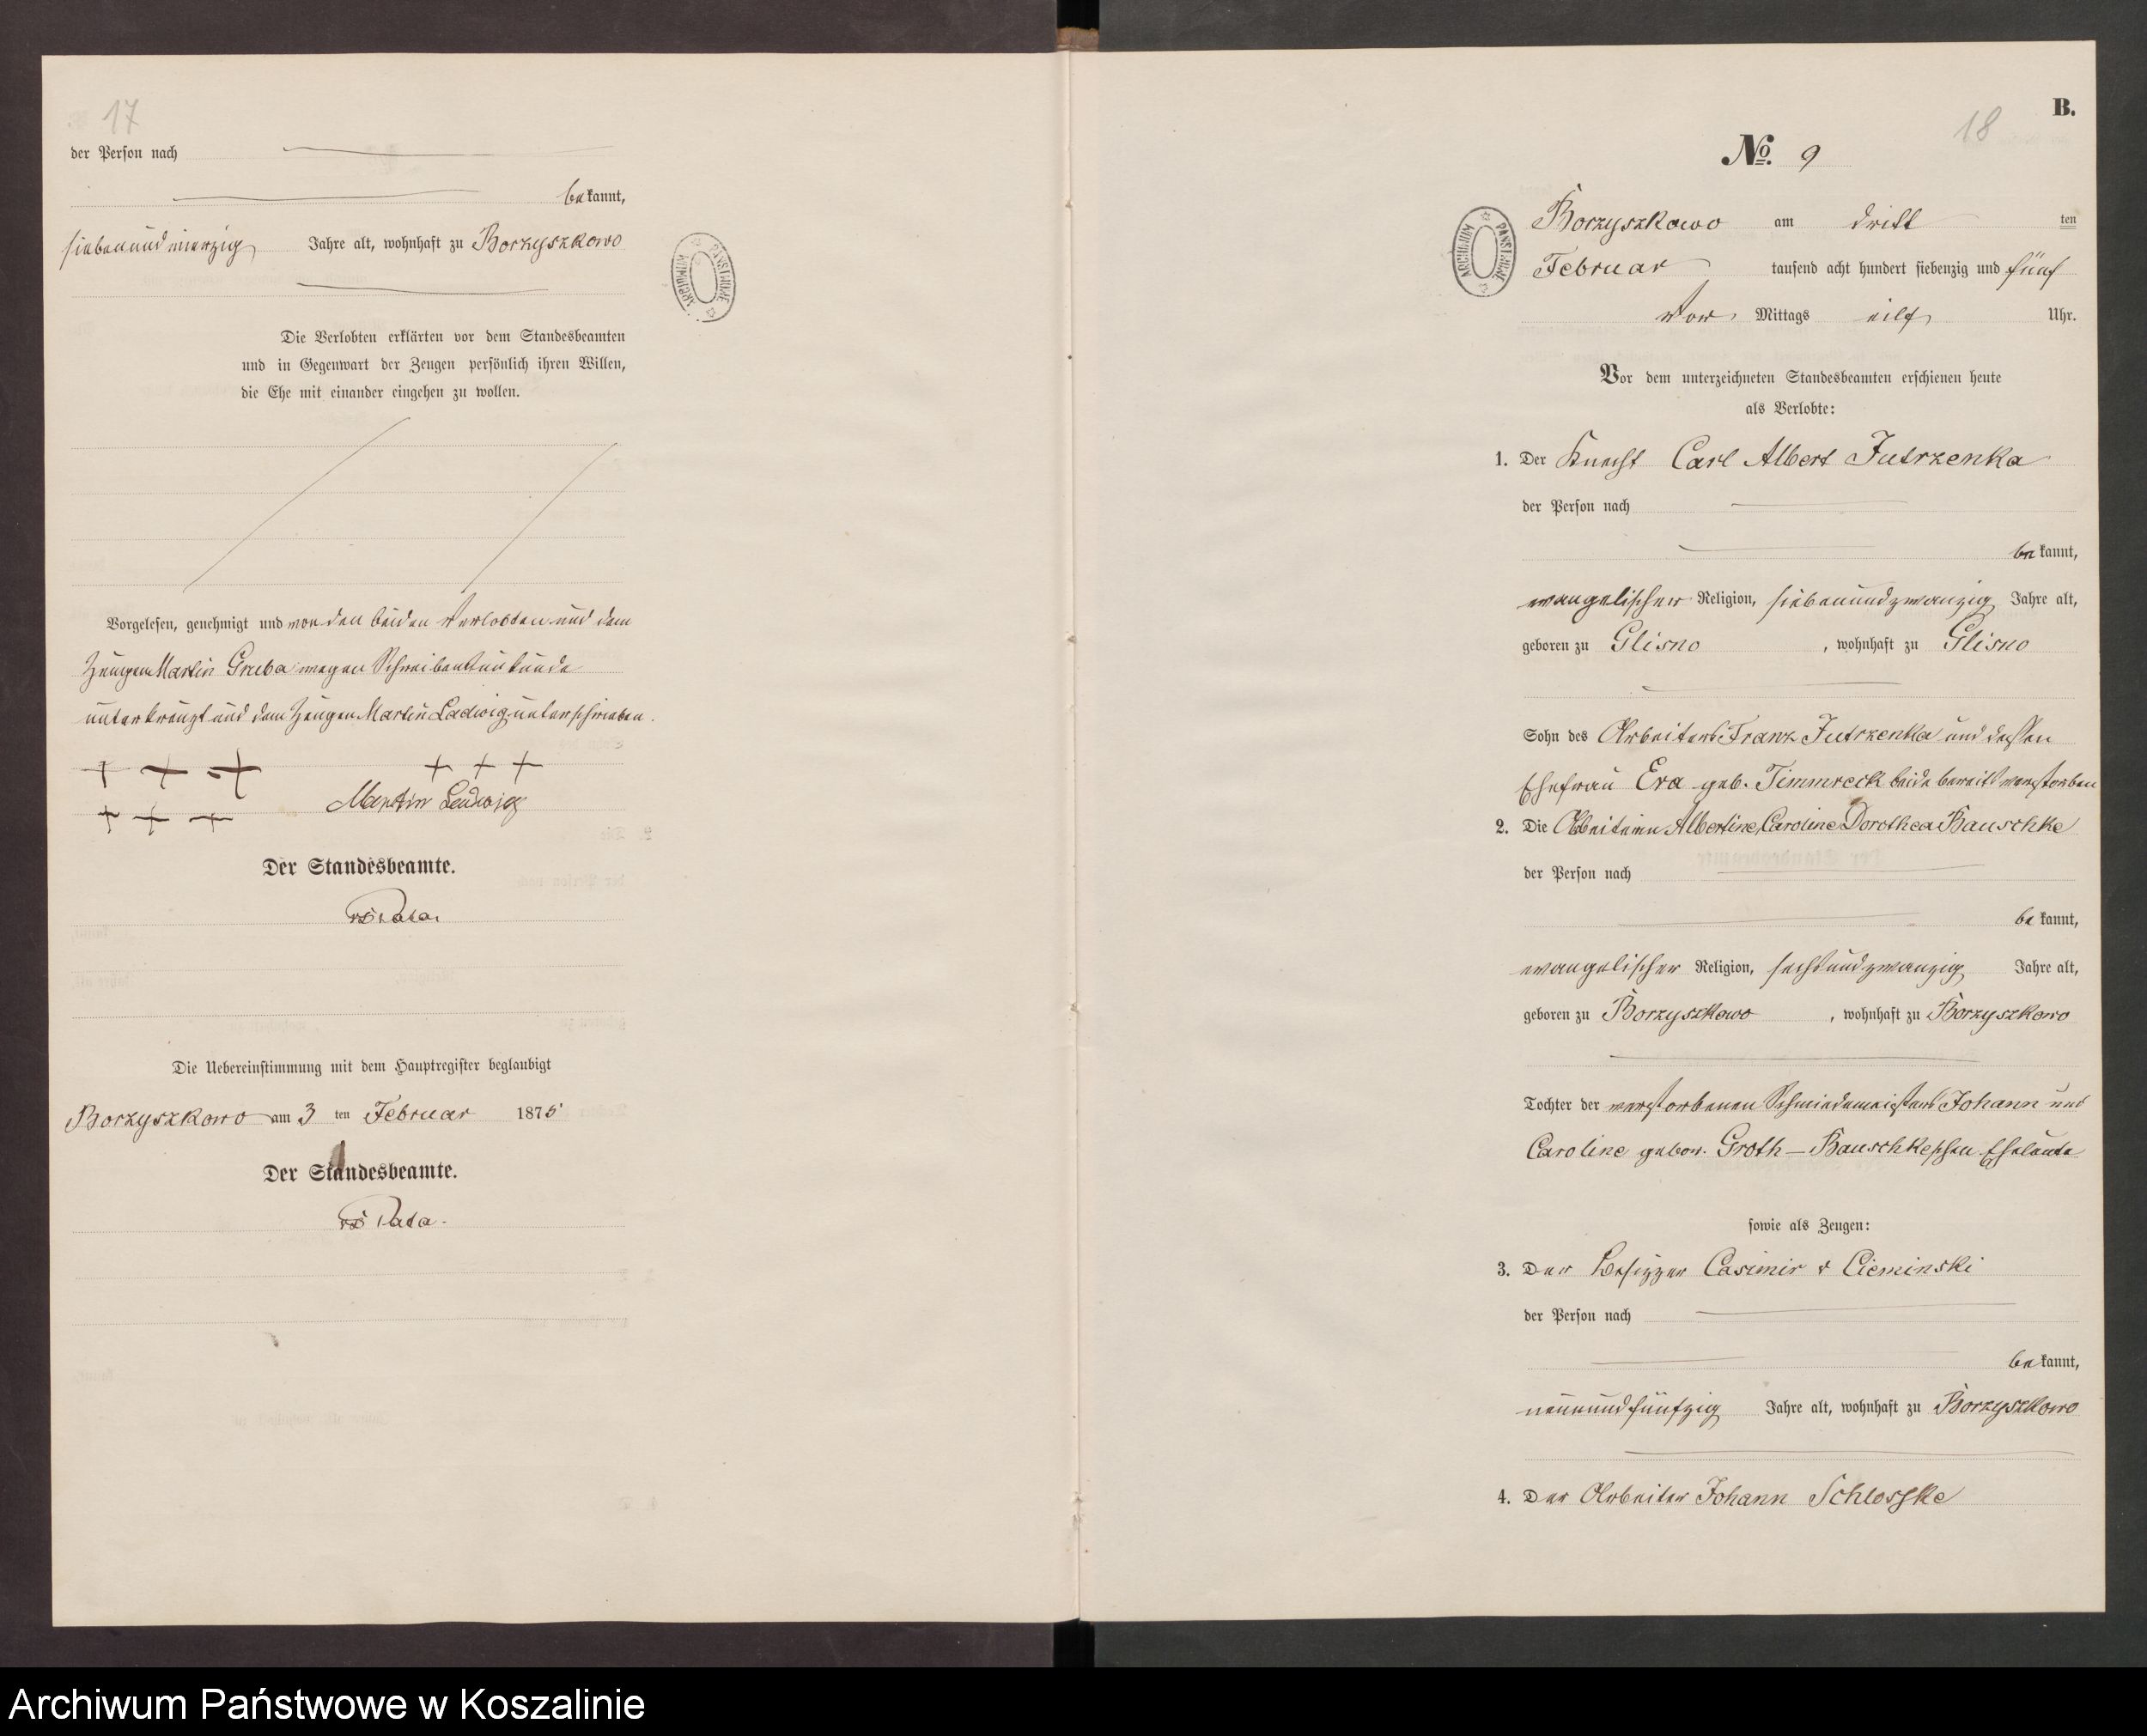 17
der Person nach
bekannt,
siebenundvierzig Jahre alt, wohnhaft zu Borzyszkowo
ARCHIWUM PAŃSTWOWE
Die Verlobten erklärten vor dem Standesbeamten
und in Gegenwart der Zeugen persönlich ihren Willen,
die Ehe mit einander eingehen zu wollen.
Vorgelesen, genehmigt und von den beiden Verlobten und dem
Zeugen Martin Gruba wegen Schreibensunkunde
unterkreuzt und dem Zeugen Martin Ladwig unterschrieben.
+ + + + + +
+ + + Martin Ladwig
Der Standesbeamte.
Die Uebereinstimmung mit dem Hauptregister beglaubigt
Borzyszkowo am 3 ten Februar 1875
Der Standesbeamte.
18
B.
No. 9
Borzyszkowo am dritt ten
Februar tausend acht hundert siebenzig und fünf
Vor Mittags eilf Uhr.
ARCHIWUM PAŃSTWOWE
Vor dem unterzeichneten Standesbeamten erschienen heute
als Verlobte:
1. Der Knecht Carl Albert Jutrzenka
der Person nach
bekannt,
evangelischer Religion, siebenundzwanzig Jahre alt,
geboren zu Glisno, wohnhaft zu Glisno
Sohn des Arbeiters Franz Jutrzenka und dessen
Ehefrau Eva geb. Timmreck beide bereits verstorben
2. Die Arbeiterin Albertine Caroline Dorothea Bauschke
der Person nach
bekannt,
evangelischer Religion, sechsundzwanzig Jahre alt,
geboren zu Borzyszkowo, wohnhaft zu Borzyszkowo
Tochter der verstorbenen Schmiedemeisters Johann und
Caroline gebor. Groth – Bauschkeschen Eheleute
sowie als Zeugen:
3. Der Besitzer Casimir v Cieminski
der Person nach
bekannt,
neunundfünfzig Jahre alt, wohnhaft zu Borzyszkowo
4. Der Arbeiter Johann Schlosske
Archiwum Państwowe w Koszalinie